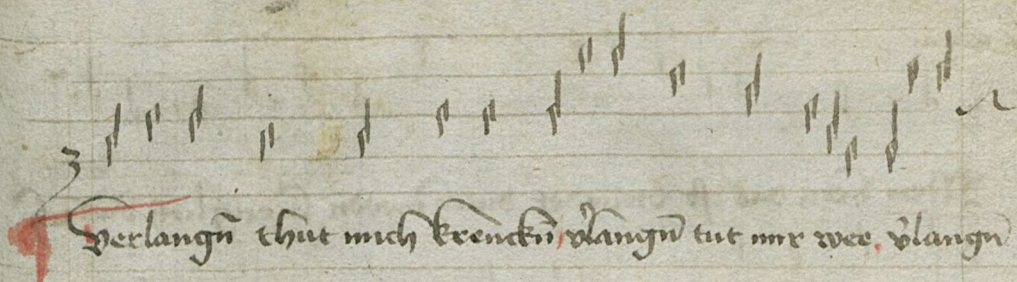 Verlangn̄ thut mich krencken̄ v̓langn̄ tut mir wee v̓langn̄